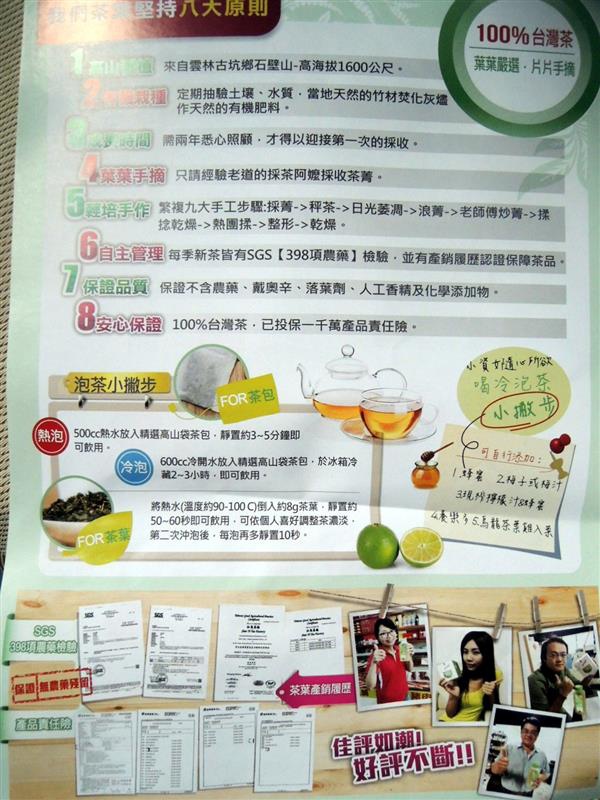 我們茶葉堅持八大原則
100%台灣茶
葉葉嚴選,片片手摘
1高山
來自雲林古坑鄉石壁山-高海拔1600公尺。
2
栽種
定期抽驗土壤、水質,當地天然的竹材焚化灰燼
作天然的有機肥料。
3
時間
需兩年悉心照顧,才得以迎接第一次的採收。
4葉葉手摘
只請經驗老道的採茶阿嬤採收茶菁。
5輕培手作
繁複九大手工步驟:採菁->秤茶->日光萎凋->浪菁->老師傅炒菁->揉
捻乾燥->熱團揉->整形->乾燥。
6自主管理
每季新茶皆有SGS【398項農藥】檢驗,並有產銷履歷認證保障茶品。
7保證品質
保證不含農藥、戴奧辛、落葉劑、人工香精及化學添加物。
8安心保證
100%台灣茶,已投保一千萬產品責任險。
泡茶小撇步
FOR茶包
熱泡
500cc熱水放入精選高山袋茶包,靜置約3~5分鐘即
可飲用。
冷泡
600cc冷開水放入精選高山袋茶包,於冰箱冷
藏2~3小時,即可飲用。
FOR茶葉
將熱水(溫度約90-100 C)倒入約8g茶葉,靜置約
50~60秒即可飲用,可依個人喜好調整茶濃淡,
第二次沖泡後,每泡再多靜置10秒。
小資女隨心所欲
喝冷泡茶
小撇步
可自行添加:
1.蜂蜜 2.梅子或梅汁
3.現榨檸檬汁&蜂蜜
4.養樂多 5.烏龍茶葉雞入菜
SGS
398項農藥檢驗
保證 無農藥殘留
SGS
茶葉產銷履歷
產品責任險
佳評如潮!
好評不斷!!